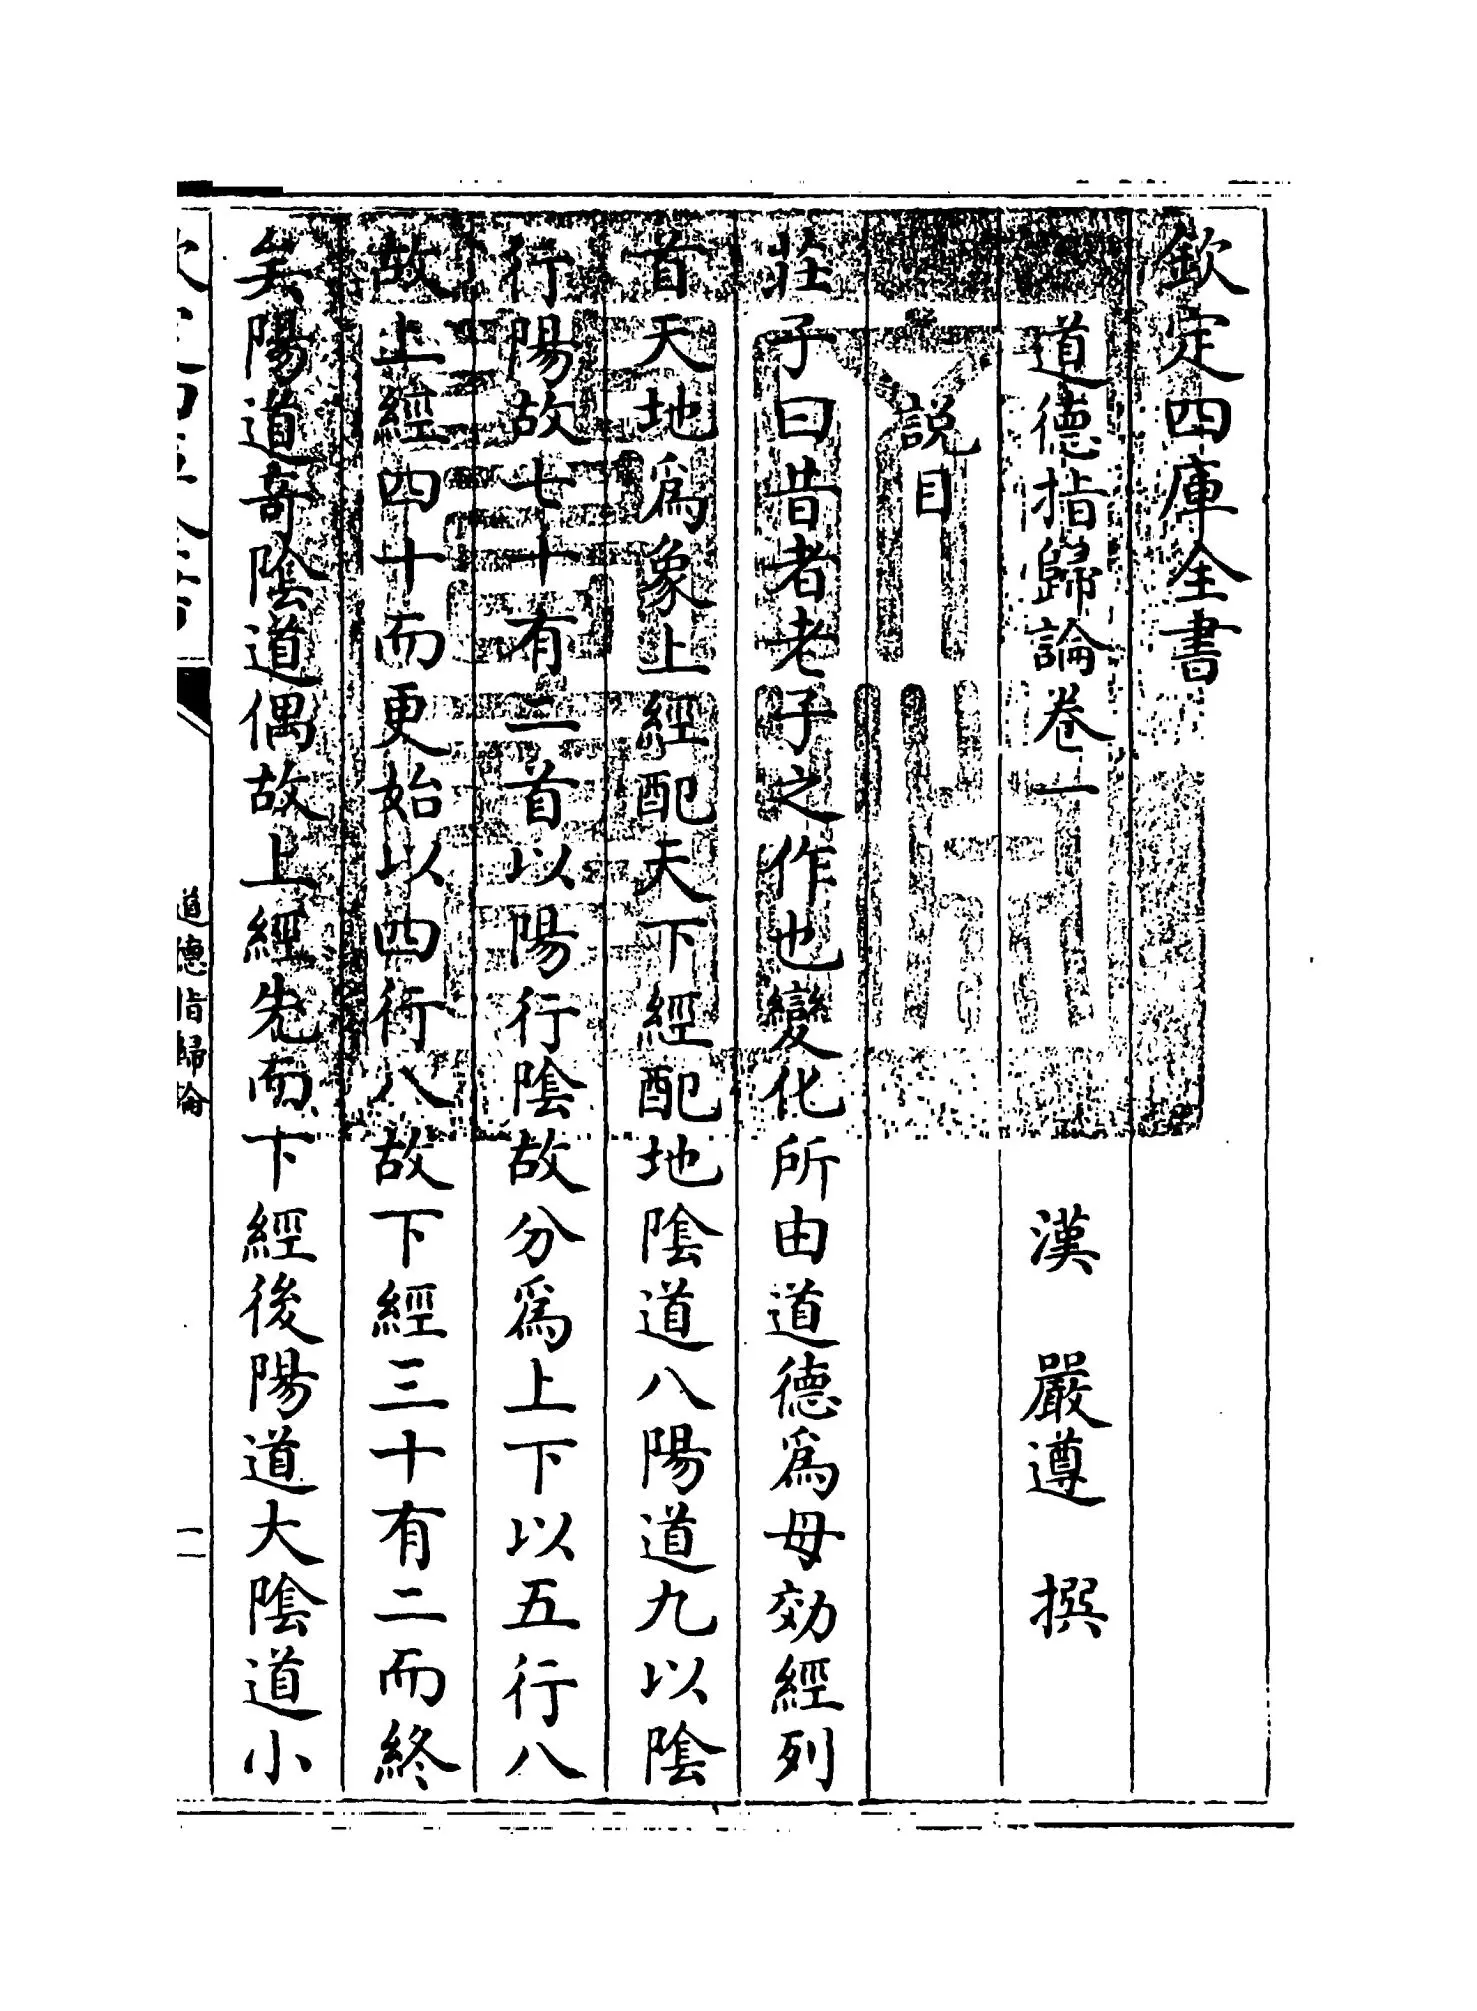 欽定四庫全書
道德指歸論卷一 漢 嚴遵 撰
說目
莊子曰昔者老子之作也變化所由道德爲母効經列
首天地爲象上經配天下經配地陰道八陽道九以陰
行陽故七十有二首以陽行陰故分爲上下以五行八
故上經四十而更始以四行八故下經三十有二而終
矣陽道奇陰道偶故上經先而下經後陽道大陰道小
道德指歸論